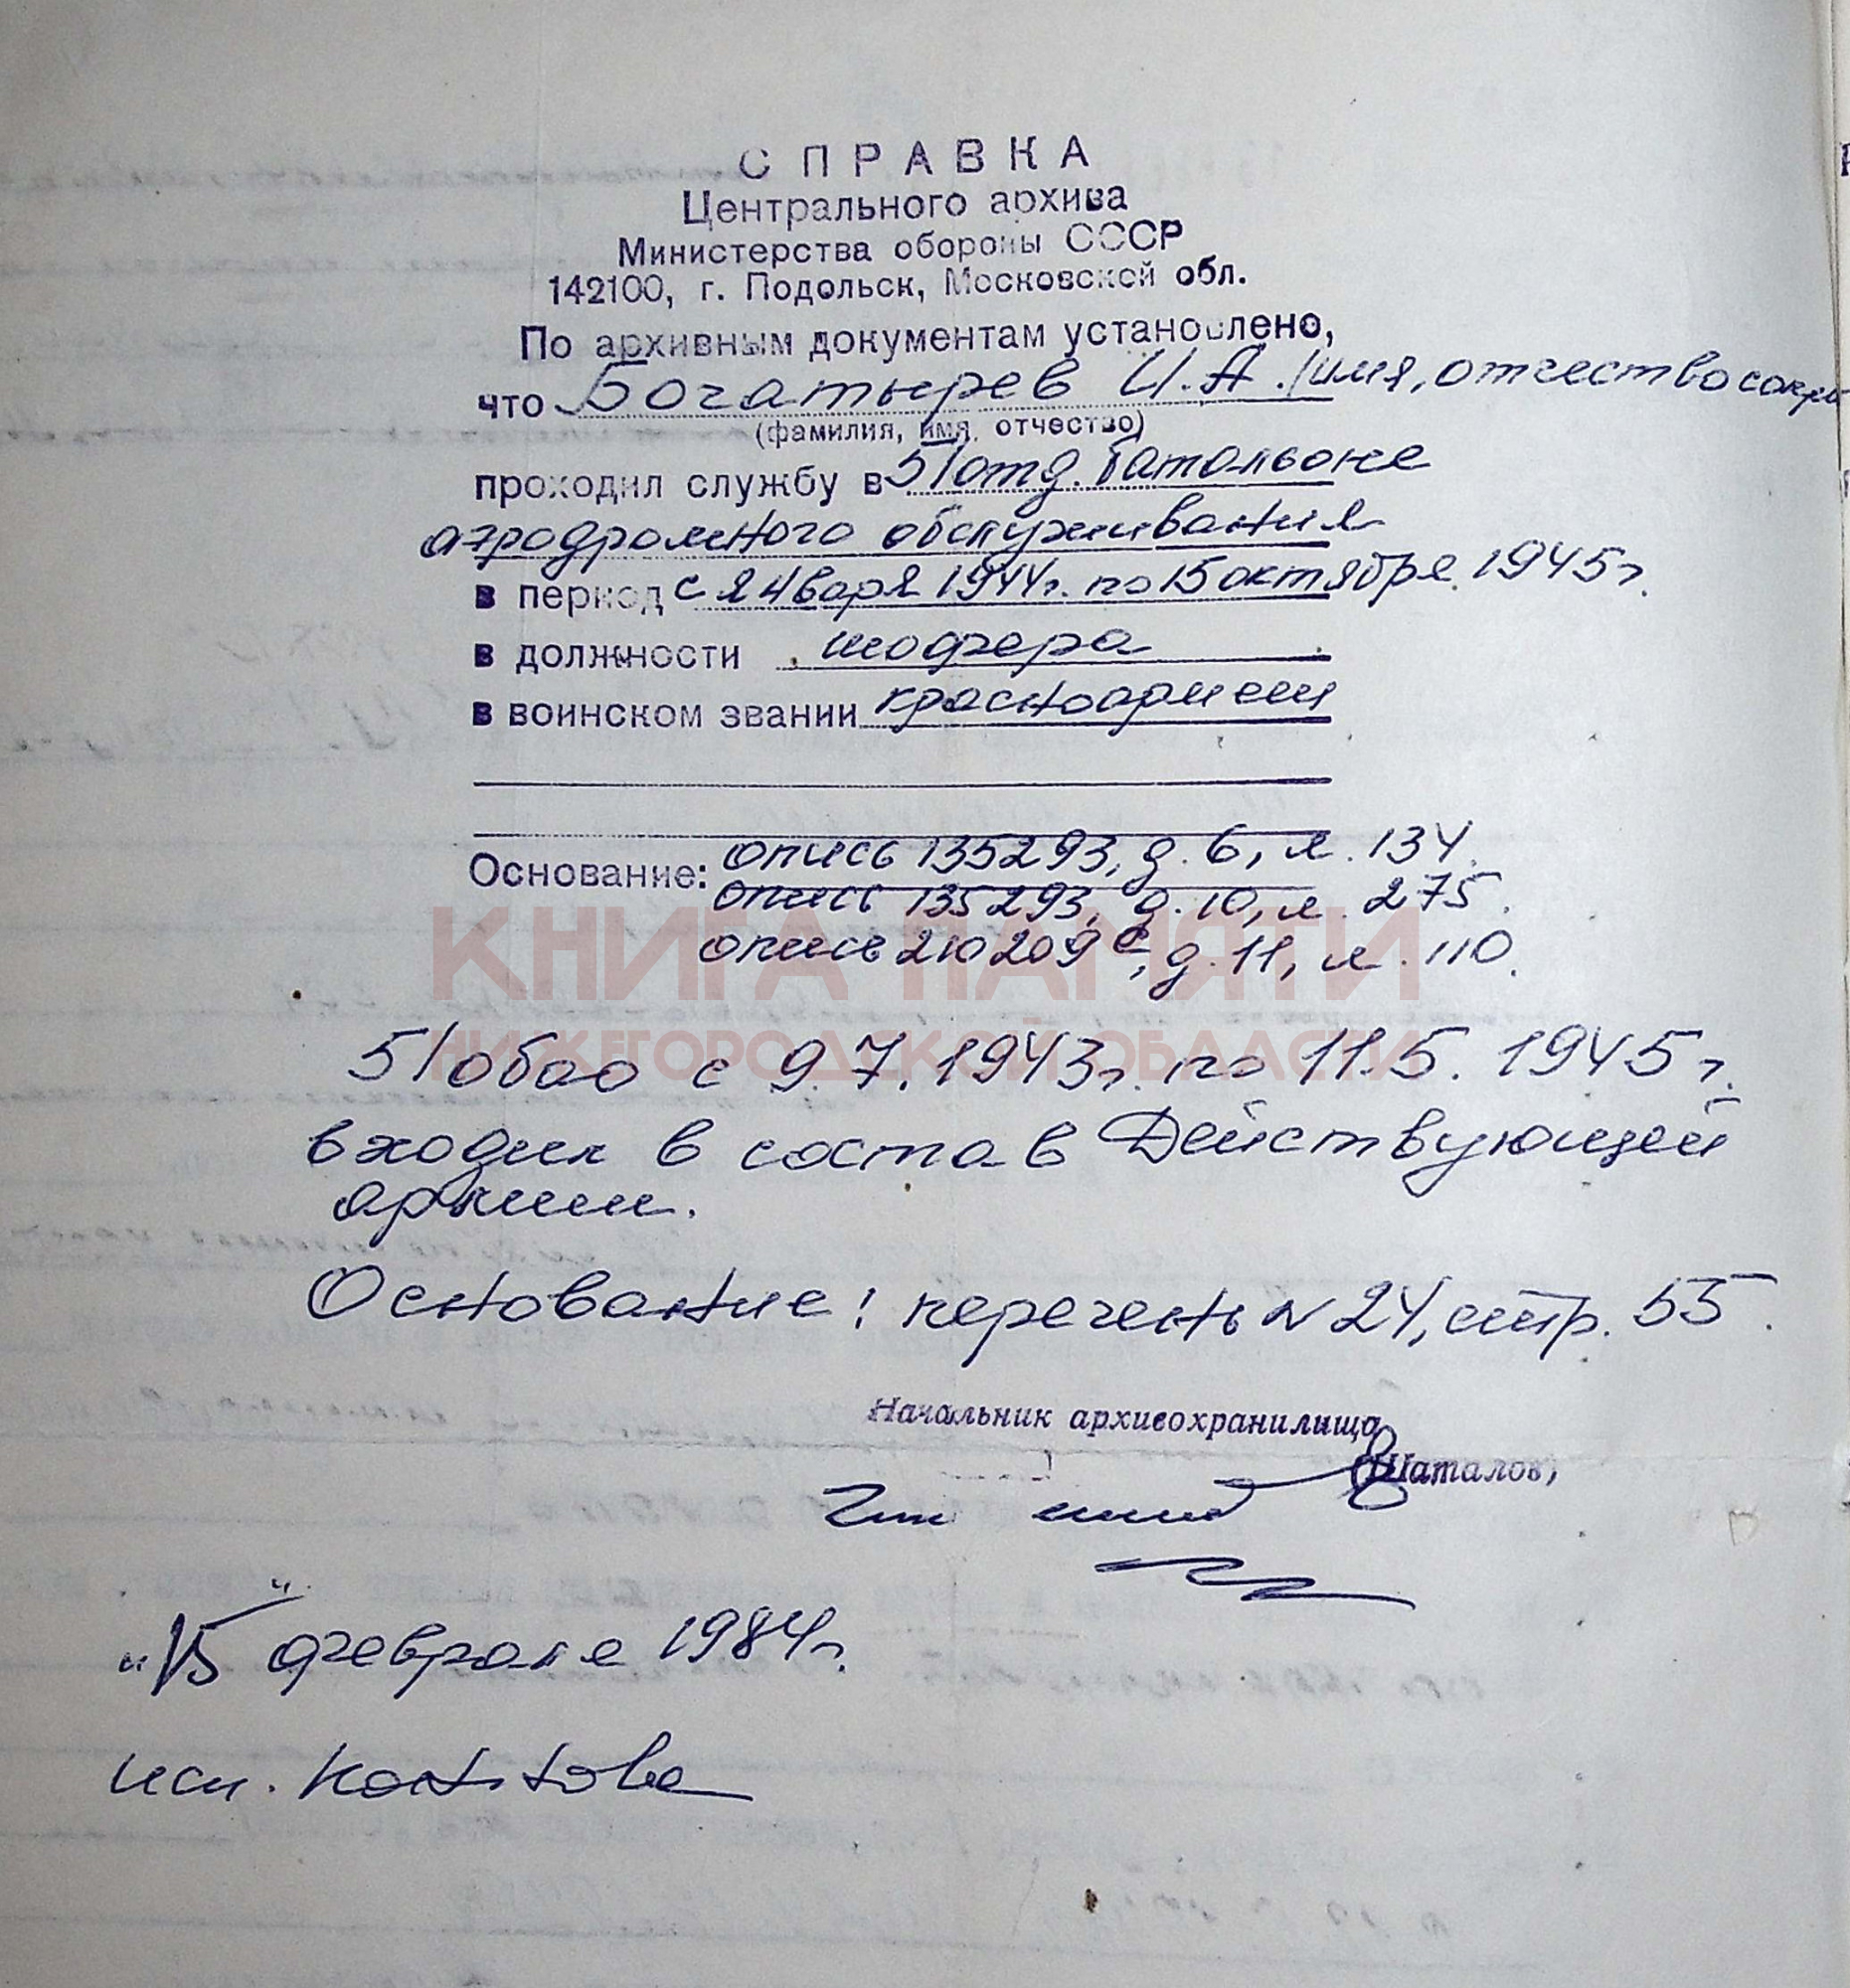 СПРАВКА
Центрального архива
Министерства обороны СССР
142100, г. Подольск, Московской обл.
По архивным документам установлено,
что Богатырев И.А. /имя, отчество сокр
(фамилия, имя, отчество)
проходил службу в 51 отд. батальоне
аэродромного обслуживания
в период с января 1944г. по 15 октября 1945г.
в должности шофера
в воинском звании красноармеец
Основание: опись 135293, д. 6, л. 134.
опись 135293, д. 10, л. 275.
опись 210209с, д. 11, л. 110.
КНИГА ПАМЯТИ
НИЖЕГОРОДСКОЙ ОБЛАСТИ
51 обао с 9.7.1943г. по 11.5.1945г.
входил в состав Действующей
армии.
Основание: перечень N 24, стр. 55.
Начальник архивохранилища
(Шаталов)
"15" февраля 1984г.
исп.